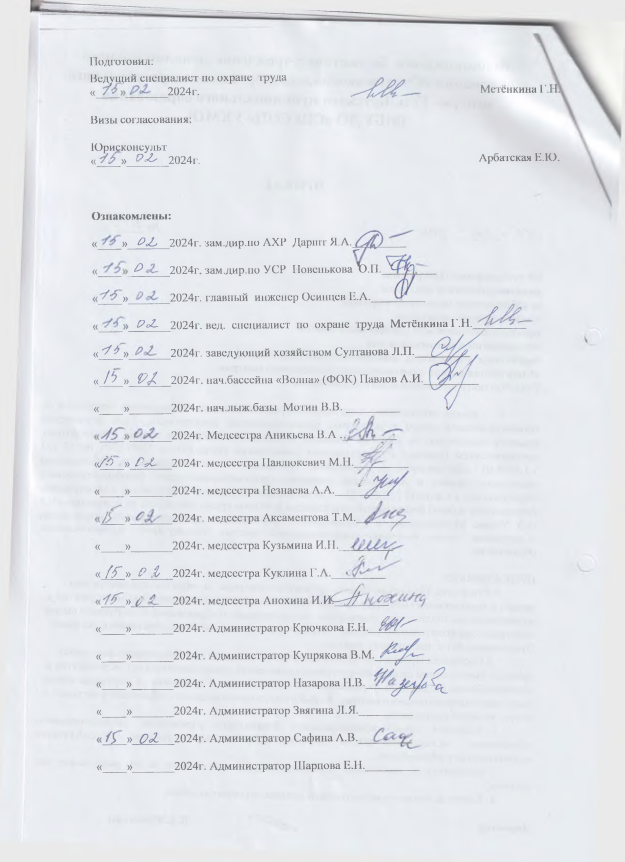 Подготовил:
Ведущий специалист по охране труда
«15» 02 2024г. Метёнкина Г.Н.
Визы согласования:
Юрисконсульт
«15» 02 2024г. Арбатская Е.Ю.
Ознакомлены:
«15» 02 2024г. зам.дир.по АХР Я.А.
«15» 02 2024г. зам.дир.по УСР Новенькова О.П.
«15» 02 2024г. главный инженер Осинцев Е.А.
«15» 02 2024г. вед. специалист по охране труда Метёнкина Г.Н.
«15» 02 2024г. заведующий хозяйством Султанова Л.П.
«15» 02 2024г. нач.бассейна «Волна» (ФОК) Павлов А.И.
«____»_______2024г. нач.лыж.базы Мотин В.В.
«15» 02 2024г. Медсестра Аникьева В.А
«15» 02 2024г. медсестра Павлюкевич М.Н.
«____»_______2024г. медсестра Незнаева А.А.
«15» 02 2024г. медсестра Аксаментова Т.М.
«____»_______2024г. медсестра Кузьмина И.Н.
«15» 02 2024г. медсестра Куклина Г.А.
«15» 02 2024г. медсестра Анохина И.И. Анохина
«____»_______2024г. Администратор Крючкова Е.Н.
«____»_______2024г. Администратор Купрякова В.М.
«____»_______2024г. Администратор Назарова Н.В. Назарова
«____»_______2024г. Администратор Звягина Л.Я.
«15» 02 2024г. Администратор Сафина А.В.
«____»_______2024г. Администратор Шарпова Е.Н.